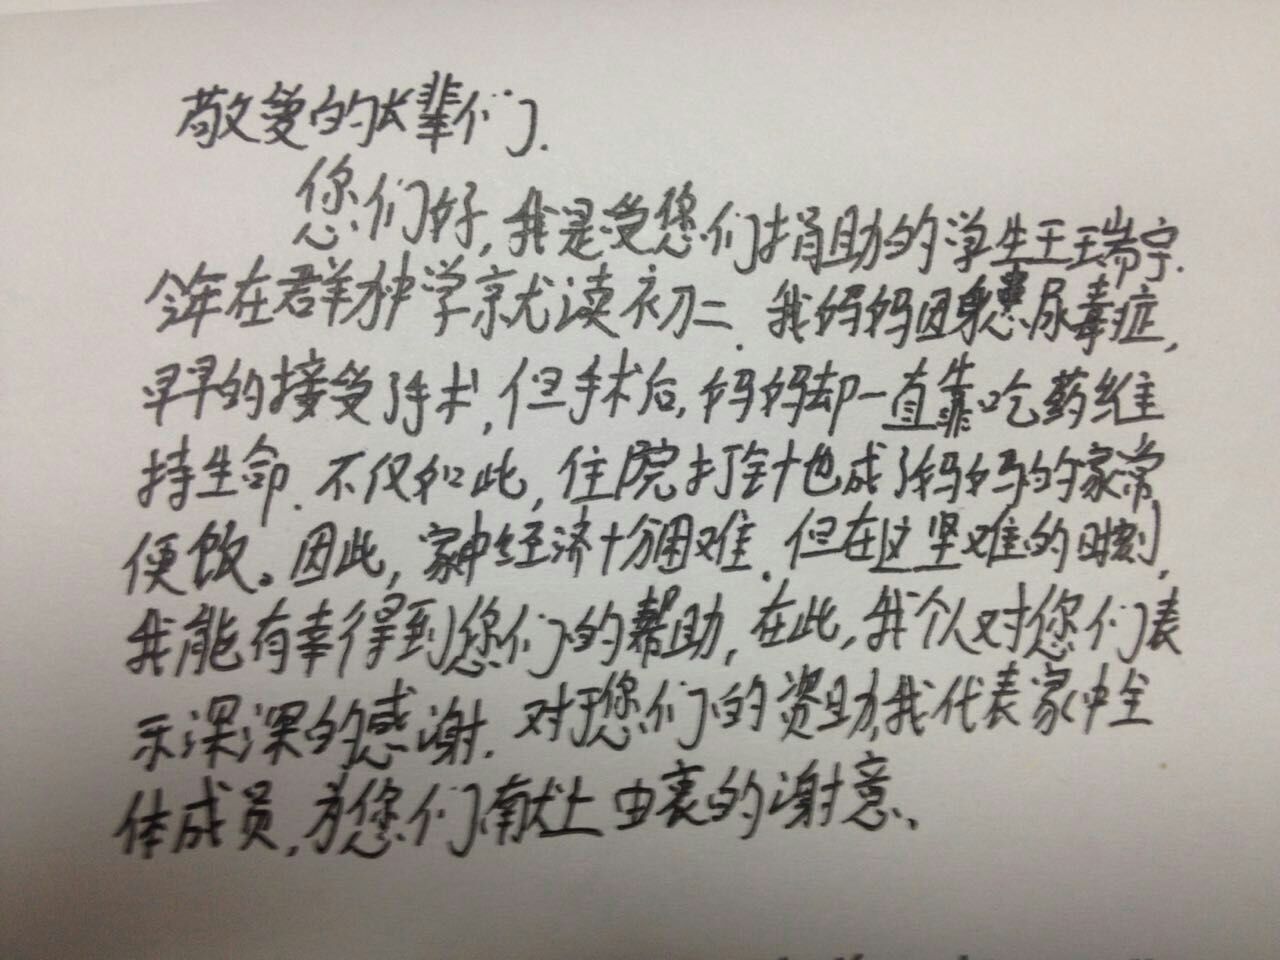 敬爱的长辈们.
您们好,我是受您们捐助的学生王瑞宁.
今年在群力中学就读初二.我妈妈因身患尿毒症,
早早的接受了手术,但手术后,妈妈却一直靠吃药维
持生命.不仅如此,住院打针也成了妈妈的家常
便饭。因此,家中经济十分困难.但在这坚难的时刻,
我能有幸得到您们的帮助,在此,我个人对您们表
示深深的感谢.对于您们的资助,我代表家中全
体成员,为您们献上由衷的谢意、